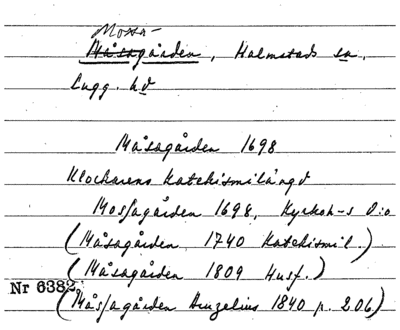 Mossa-
Måsagården, Halmstads sn.
Lugg. hd
Måsagården 1698
Klockarens katekismilängd
Mossagården 1698, Kyrkoh-s D:o
(Måsagården 1740 Katekismil.)
(Måsagården 1809 Husf.)
Nr 6382
(Måssagården Hruzelius 1840 p. 206)